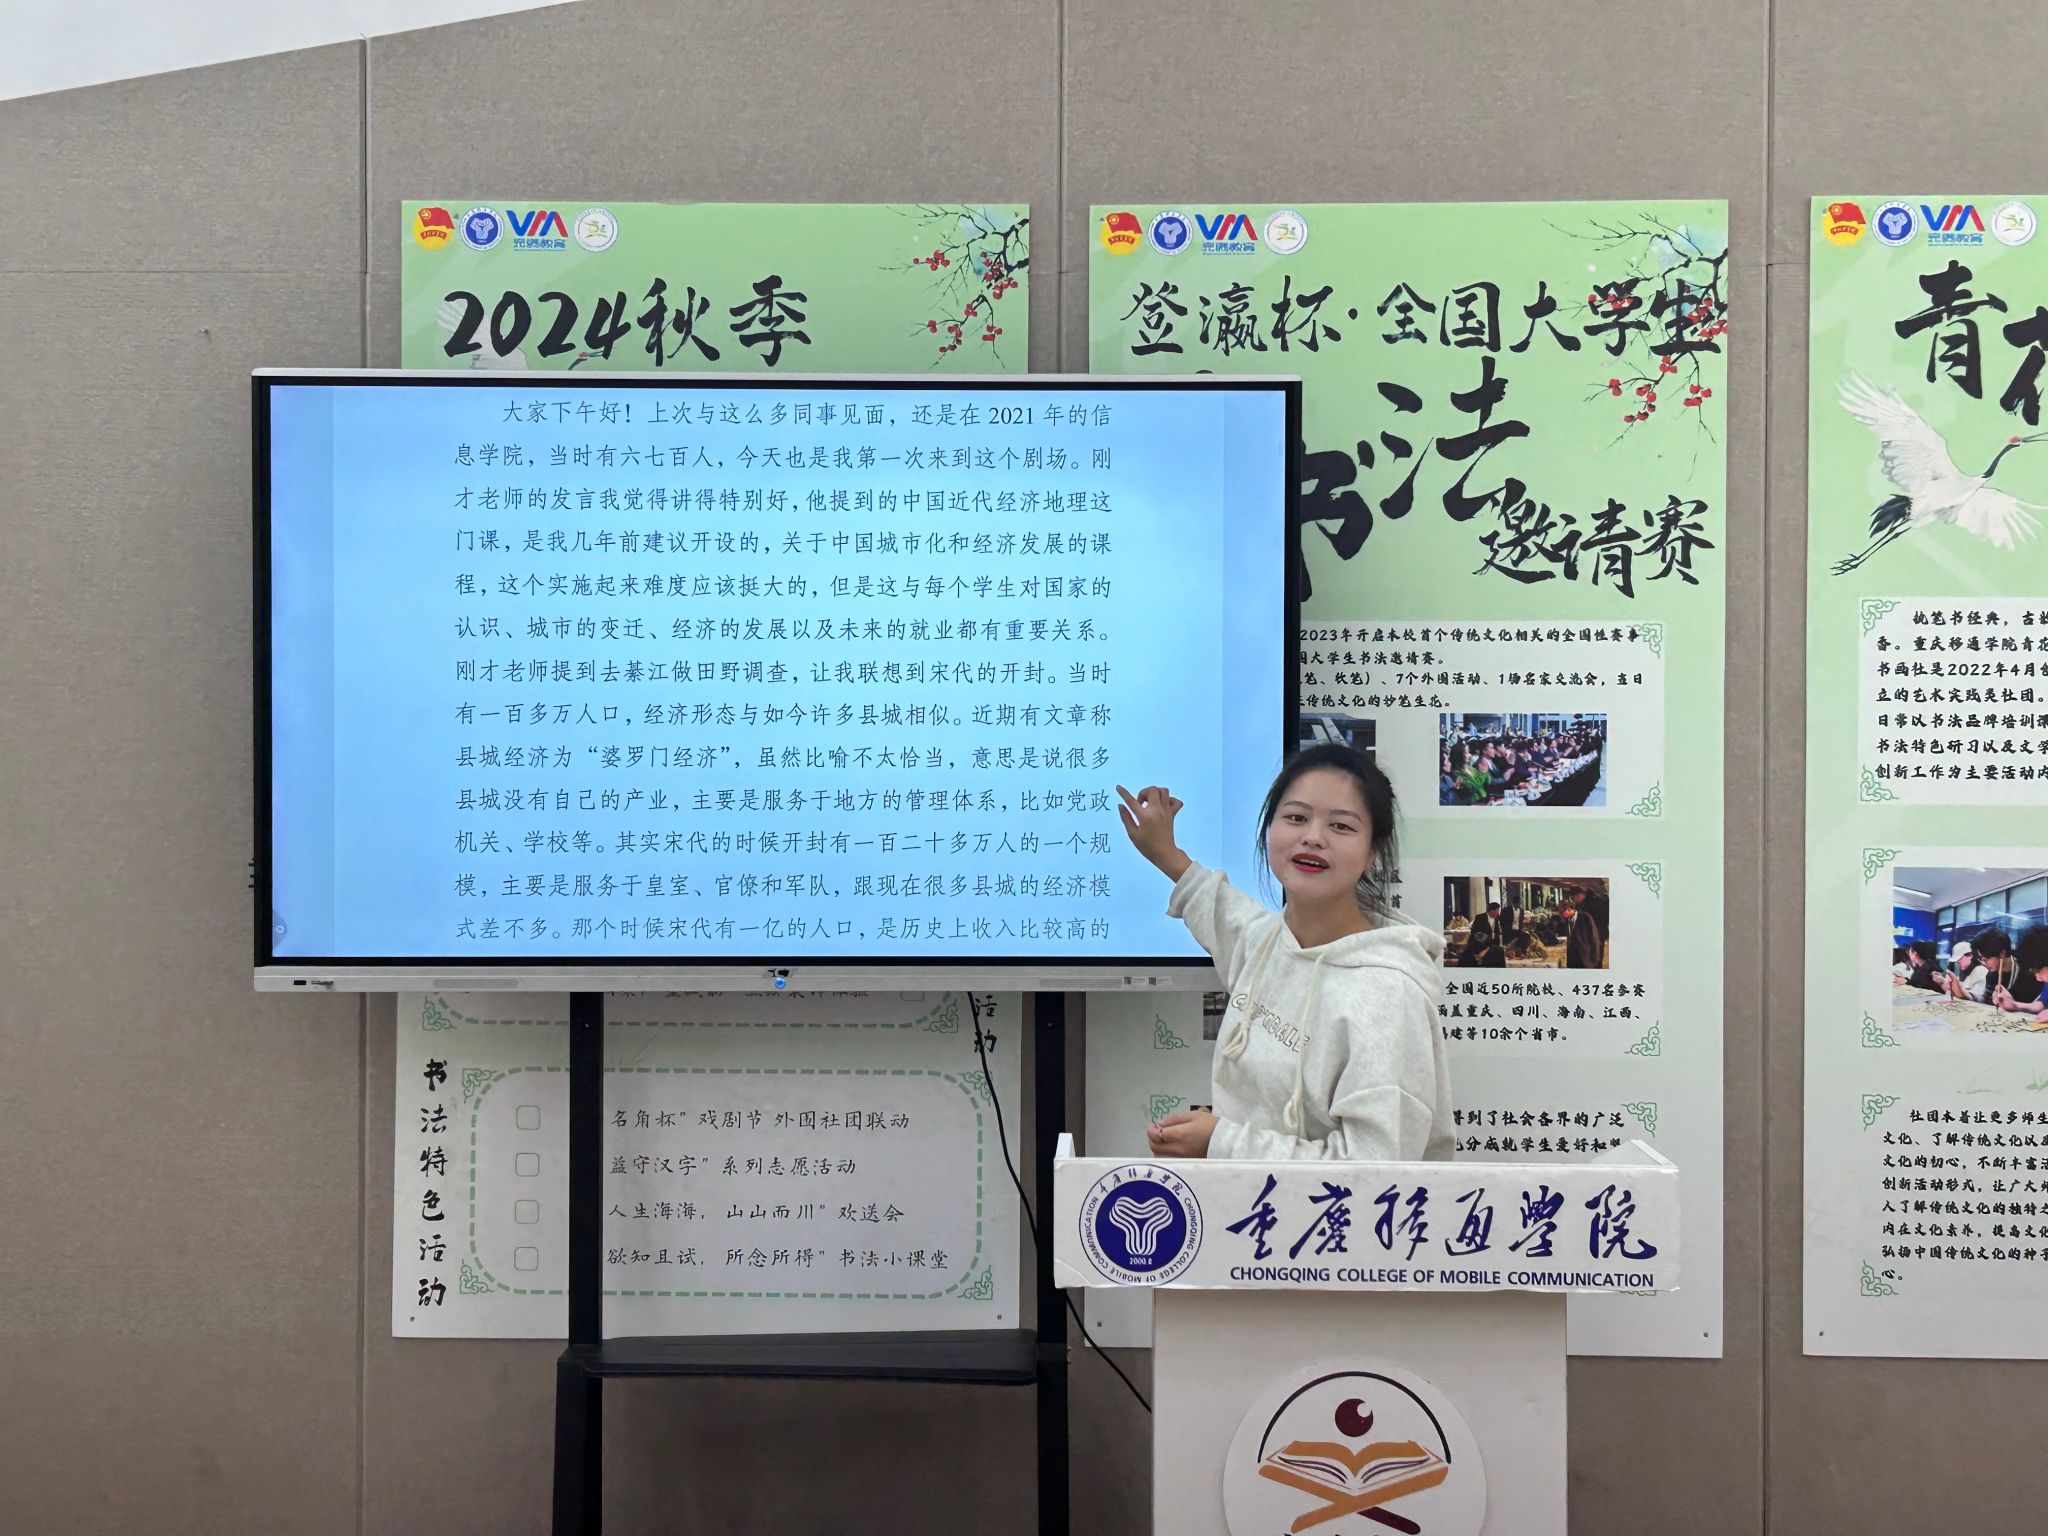 2024秋季
大家下午好！上次与这么多同事见面，还是在 2021 年的信
息学院，当时有六七百人，今天也是我第一次来到这个剧场。刚
才老师的发言我觉得讲得特别好，他提到的中国近代经济地理这
门课，是我几年前建议开设的，关于中国城市化和经济发展的课
程，这个实施起来难度应该挺大的，但是这与每个学生对国家的
认识、城市的变迁、经济的发展以及未来的就业都有重要关系。
刚才老师提到去綦江做田野调查，让我联想到宋代的开封。当时
有一百多万人口，经济形态与如今许多县城相似。近期有文章称
县城经济为“婆罗门经济”，虽然比喻不太恰当，意思是说很多
县城没有自己的产业，主要是服务于地方的管理体系，比如党政
机关、学校等。其实宋代的时候开封有一百二十多万人的一个规
模，主要是服务于皇室、官僚和军队，跟现在很多县城的经济模
式差不多。那个时候宋代有一亿的人口，是历史上收入比较高的
活动
书法特色活动
名角杯”戏剧节 外围社团联动
益守汉字”系列志愿活动
人生海海，山山而川”欢送会
欲知且试，所念所得”书法小课堂
登瀛杯·全国大学生
书法
邀请赛
2023年开启本校首个传统文化相关的全国性赛事
国大学生书法邀请赛。
笔、软笔）、7个外围活动、1场名家交流会，立日
传统文化的妙笔生花。
全国近50所院校、437名参赛
涵盖重庆、四川、海南、江西、
建等10余个省市。
得到了社会各界的广泛
充分成就学生爱好和
青花
执笔书经典，古韵
香。重庆移通学院青花
书画社是2022年4月
立的艺术实践类社团。
日常以书法品牌培训课
书法特色研习以及文学
创新工作为主要活动内
社团本着让更多师生
文化、了解传统文化以及
文化的初心，不断丰富活
创新活动形式，让广大师
人了解传统文化的独特之
内在文化素养，提高文化
弘扬中国传统文化的种子
心。
VM
完满教育
VM
完满教育
VM
完满教育
重庆移通学院
CHONGQING COLLEGE OF MOBILE COMMUNICATION
重庆移通学院
CHONGQING COLLEGE OF MOBILE COMMUNICATION
2000